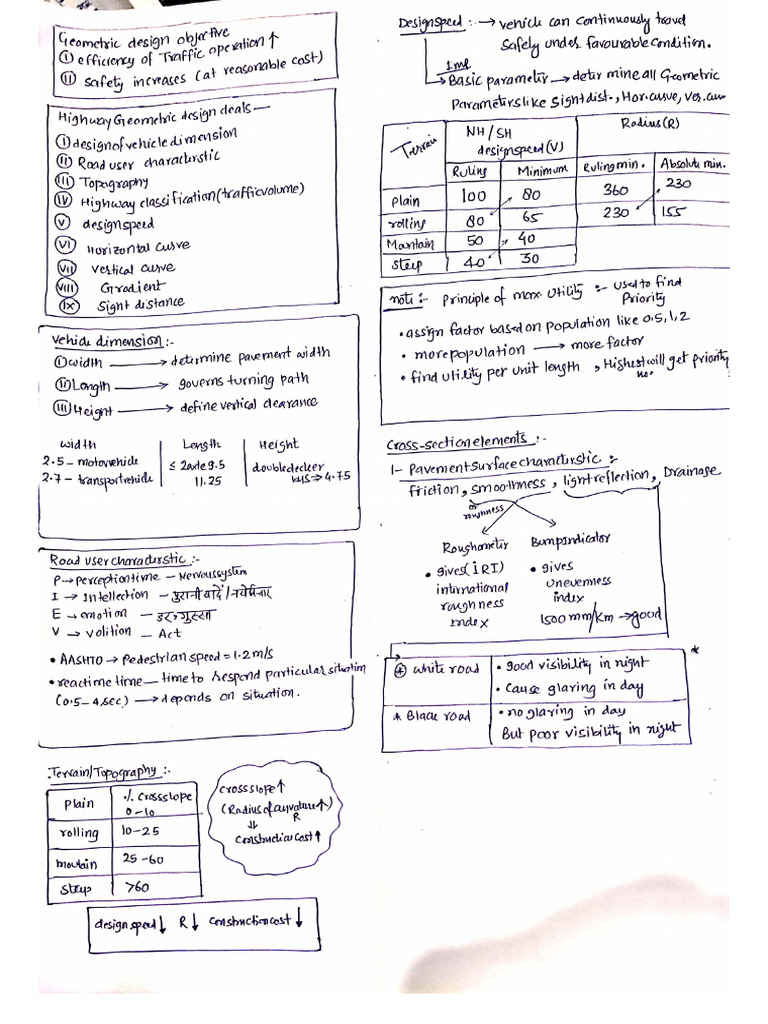 Geometric design objective
(i) efficiency of Traffic operation ↑
(ii) safety increases (at reasonable cost)
Highway Geometric design deals —
(i) design of vehicle dimension
(ii) Road user characterstic
(iii) Topography
(iv) Highway classification (traffic volume)
(v) design speed
(vi) Horizontal curve
(vii) vertical curve
(viii) Gradient
(ix) Sight distance
Vehicle dimension :-
(i) width → determine pavement width
(ii) Length → governs turning path
(iii) Height → define vertical clearance
width Length Height
2.5 - motor vehicle ≤ 2 axle 9.5 double decker
2.7 - transport vehicle 11.25 ⇒ 4.75
Road user characterstic :-
P → perception time - Nervous system
I → Intellection - पुरानी यादें /
E → emotion - डर, गुस्सा
V → volition - Act
• AASHTO → Pedestrian speed = 1.2 m/s
• reactime time — time to respond particular situation
(0.5 - 4 sec) → depends on situation.
Terrain/Topography :-
Plain % cross slope 0-10
rolling 10-25
moutain 25-60
steep >60
cross slope ↑
(Radius of curvature ↑)
R
⇓
construction cost ↑
design speed ↓ R ↓ construction cost ↓
Design speed :- → vehicle can continuously travel
safely under favourable condition.
Imp
→ Basic parameter → determine all Geometric
Parameters like Sight dist., Hor. curve, Ver. curv
Terrain NH/SH design speed (V) Radius (R)
Ruling Minimum Ruling min. Absolute min.
Plain 100 80 360 230
rolling 80 65 230 155
Mountain 50 40
Steep 40 30
note :- Principle of max. Utility :- used to find
Priority
• assign factor based on population like 0.5, 1, 2
• more population → more factor
• find utility per unit length , Highest will get priority
no.
Cross-section elements :-
1- Pavement surface characterstic :-
friction, smoothness, light reflection, Drainage
or roughness
Roughometer Bump Indicator
• gives (IRI) • gives
international unevenness
roughness index
Index 1500 mm/km → good
* white road • Good visibility in night
• cause glaring in day
*
* Black road • no glaring in day
But poor visibility in night